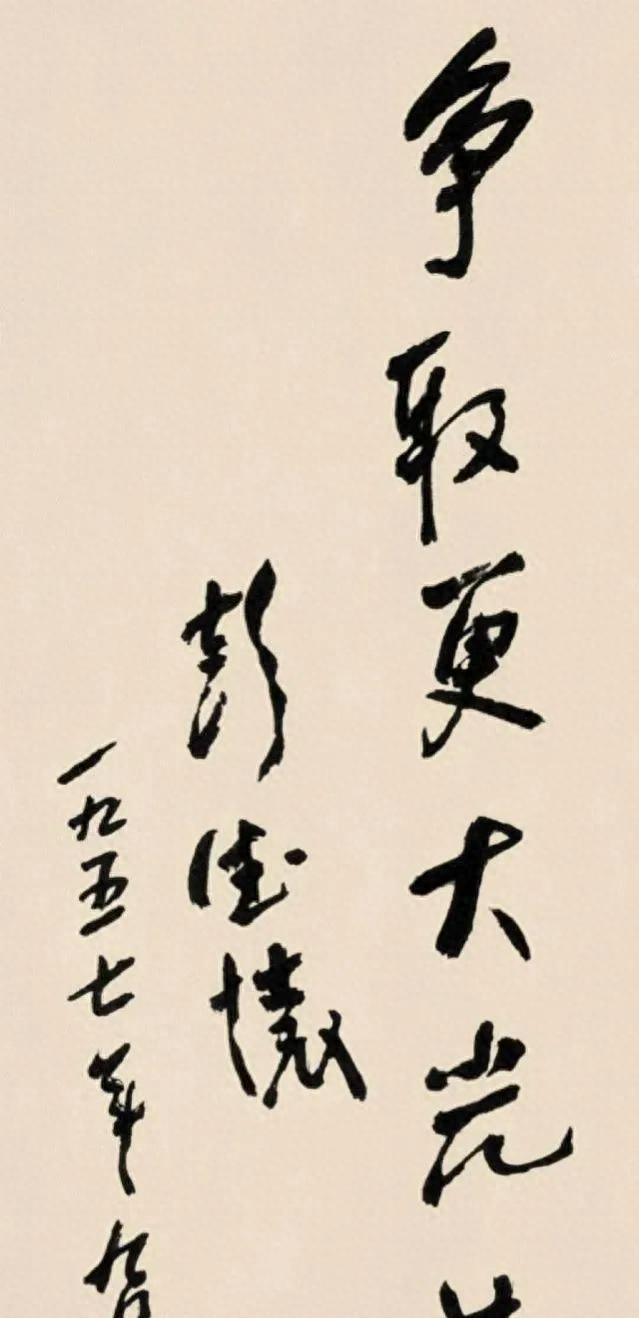 争取更大光
彭德怀
一九五七年九月